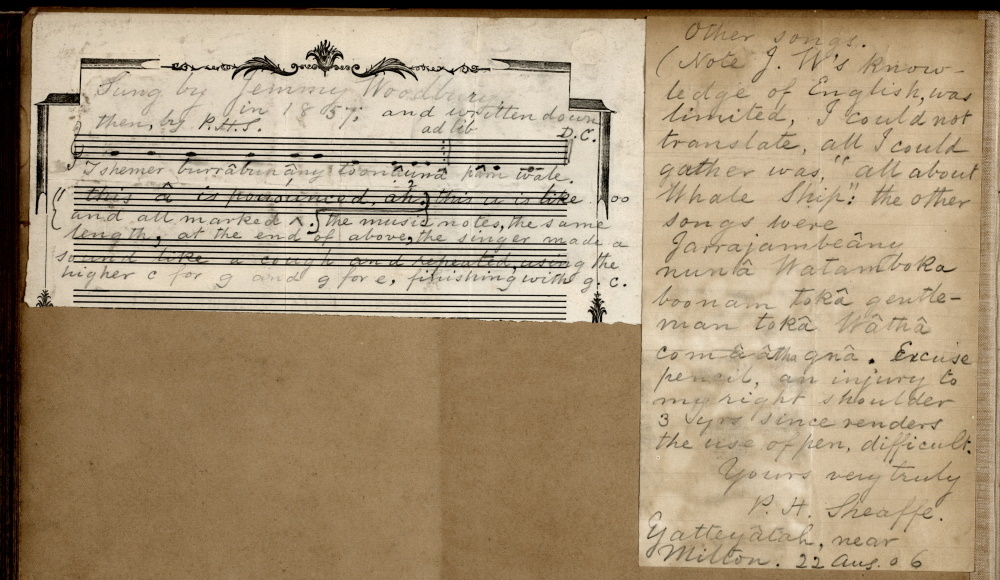 Sung by Jemmy Woodbury
in 1857; and written down
then, by P.H.S.
ad lib
D.C.
burrâbunâny toonâunâ wâle.
this â is pronounced, ah; this u is like oo
and all marked ^ } the music notes, the same
length; at the end of above, the singer made a
sound like a cough and repeated, using the
higher c for g and g for e, finishing with g. c.
Other songs.
(Note J. W's know-
ledge of English, was
limited, I could not
translate, all I could
gather was, "all about
Whale Ship": the other
songs were
Jarrajambeâny
nunâ Watamboka
boonam tokâ gentle-
man tokâ Wâthâ
gnâ. Excuse
pencil, an injury to
my right shoulder
3 yrs since renders
the use of pen, difficult.
Yours very truly
P. H. Sheaffe.
Yatteyâtah, near
Milton. 22 Aug. 06